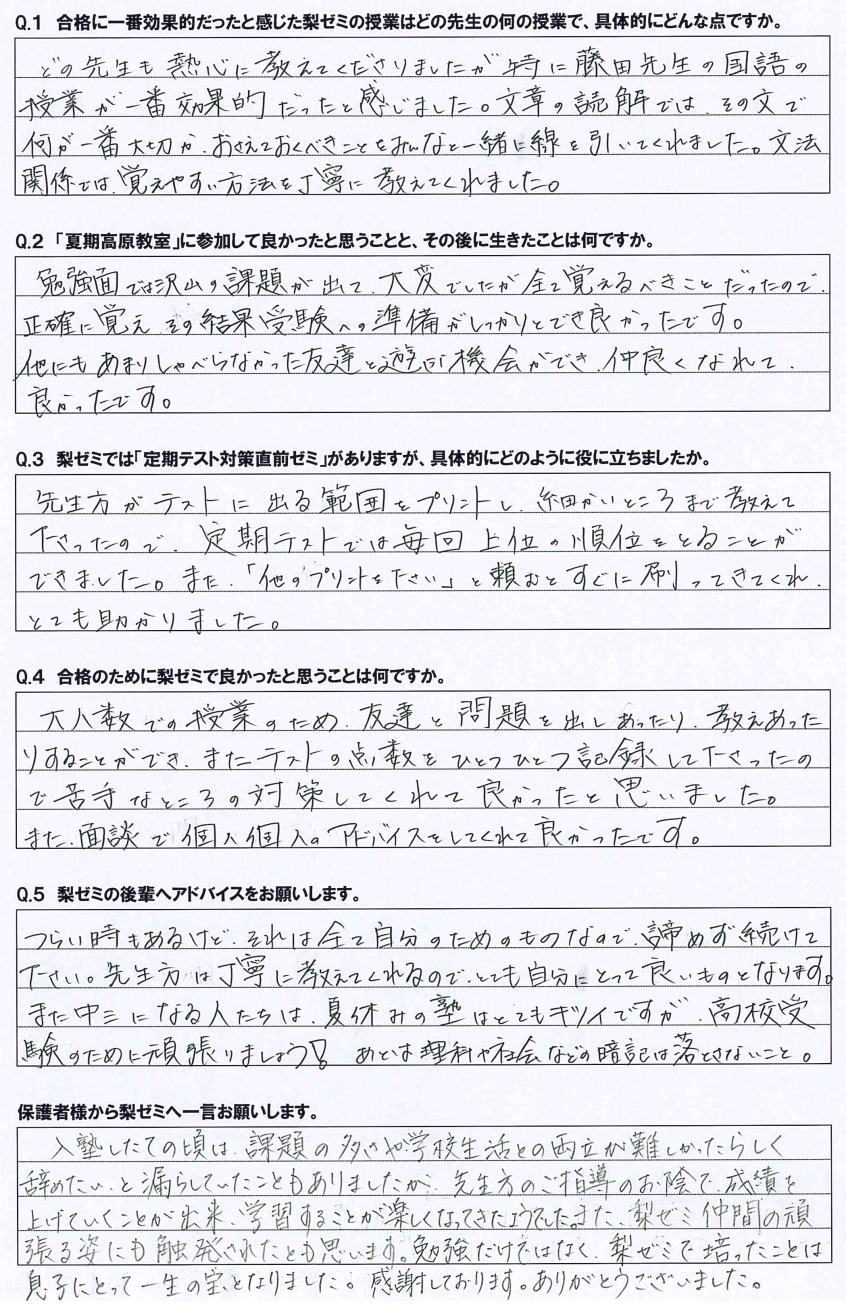 Q.1 合格に一番効果的だったと感じた梨ゼミの授業はどの先生の何の授業で、具体的にどんな点ですか。
どの先生も熱心に教えてくださりましたが特に藤田先生の国語の
授業が一番効果的だったと感じました。文章の読解では、その文で
何が一番大切か、おさえておくべきことをみんなと一緒に線を引いてくれました。文法
関係では、覚えやすい方法を丁寧に教えてくれました。
Q.2 「夏期高原教室」に参加して良かったと思うことと、その後に生きたことは何ですか。
勉強面では沢山の課題が出て、大変でしたが全て覚えるべきことだったので、
正確に覚えその結果受験への準備がしっかりとでき良かったです。
他にもあまりしゃべらなかった友達と遊ぶ機会ができ、仲良くなれて、
良かったです。
Q.3 梨ゼミでは「定期テスト対策直前ゼミ」がありますが、具体的にどのように役に立ちましたか。
先生方がテストに出る範囲をプリントし、細かいところまで教えて
下さったので、定期テストでは毎回上位の順位をとることが
できました。また、「他のプリントを下さい」と頼むとすぐに刷ってきてくれ、
とても助かりました。
Q.4 合格のために梨ゼミで良かったと思うことは何ですか。
大人数での授業のため、友達と問題を出しあったり、教えあった
りすることができ、またテストの点数をひとつひとつ記録して下さったの
で苦手なところの対策してくれて良かったと思いました。
また、面談で個人個人のアドバイスをしてくれて良かったです。
Q.5 梨ゼミの後輩へアドバイスをお願いします。
つらい時もあるけど、それは全て自分のためのものなので、諦めず続けて
下さい。先生方は丁寧に教えてくれるので、とても自分にとって良いものとなります。
また中三になる人たちは、夏休みの塾はとてもキツイですが、高校受
験のために頑張りましょう! あとは理科や社会などの暗記は落とさないこと。
保護者様から梨ゼミへ一言お願いします。
入塾したての頃は、課題の多さや学校生活との両立が難しかったらしく
辞めたい、と漏らしていたこともありましたが、先生方のご指導のお陰で、成績を
上げていくことが出来、学習することが楽しくなってきたようでした。また、梨ゼミ仲間の頑
張る姿にも触発されたとも思います。勉強だけではなく、梨ゼミで培ったことは
息子にとって一生の宝となりました。感謝しております。ありがとうございました。